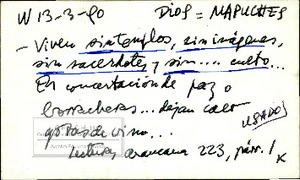 W 13-3-90 DIOS = MAPUCHES
- Viven sin templos, sin imágenes,
sin sacerdotes, y sin.... culto...
En concertación de paz o
borracheras... dejan caer
gotas de vino... USADOS
Lectura araucana 223, párr. 1
K